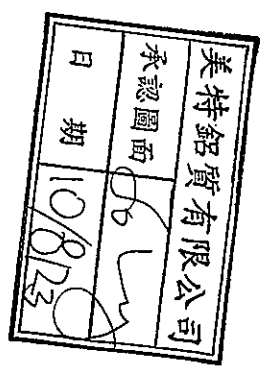 美特鋁質有限公司
承認圖面
日期 10/8/23